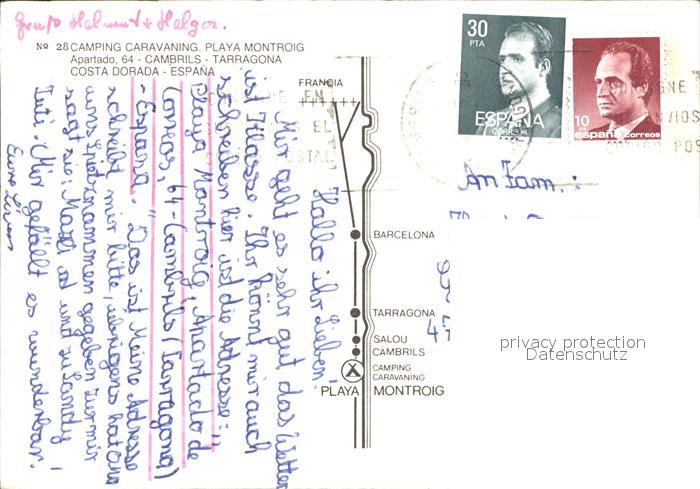 Gruß Helmut + Helga.
No 28 CAMPING CARAVANING. PLAYA MONTROIG
Apartado, 64 - CAMBRILS - TARRAGONA
COSTA DORADA - ESPAÑA
30
PTA
ESPAÑA
CORREOS
10
españa correos
FRANCIA
BARCELONA
TARRAGONA
SALOU
CAMBRILS
CAMPING
CARAVANING
PLAYA MONTROIG
An Fam.:
privacy protection
Datenschutz
Hallo ihr Lieben!
Mir geht es sehr gut das Wetter
ist Klasse. Ihr könnt mir auch
schreiben hier ist die Adresse: "
Playa Montroig, Apartado de
Correos, 64-Cambrils (Tarragona)
- Espana." Das ist Meine Adresse
schreibt mir bitte, übrigens hat Oma
uns Spitznamen gegeben zu mir
sagt sie: und zu Sandy
Tuti. Mir gefällt es wunderbar.
Eure